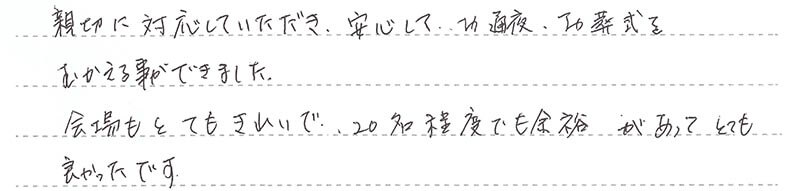 親切に対応していただき、安心して、お通夜、お葬式を
むかえる事ができました。
会場もとてもきれいで、、20名程度でも余裕があってとても
良かったです。